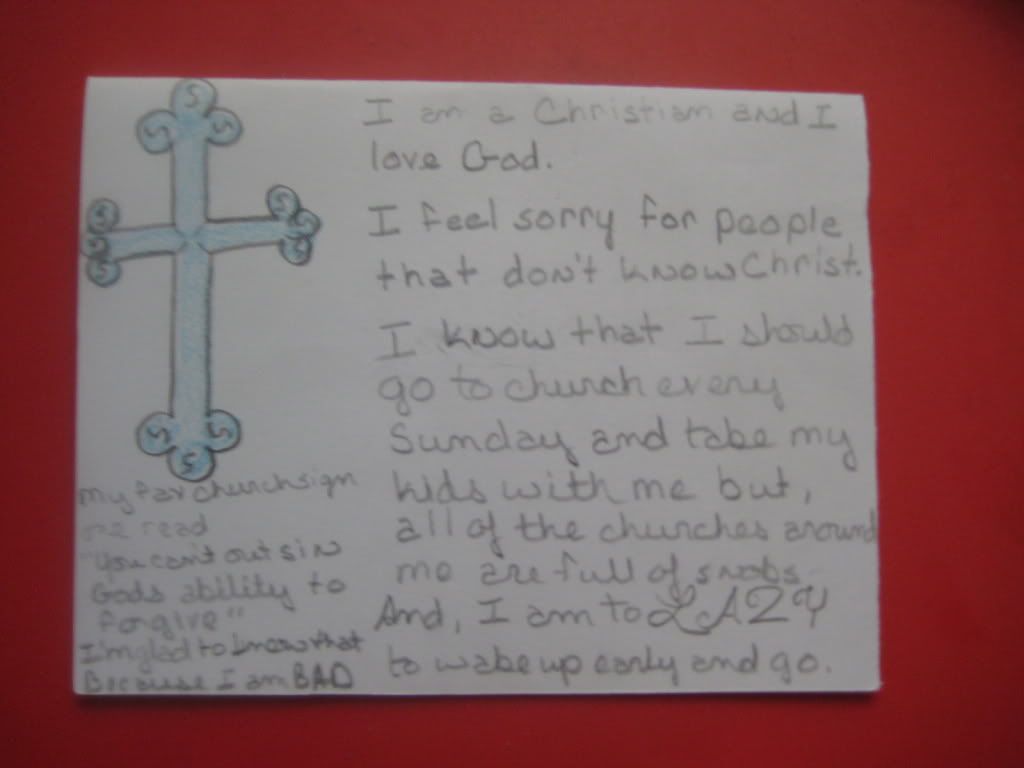 I am a Christian and I
love God.
I feel sorry for people
that don't know Christ.
I know that I should
go to church every
Sunday and take my
kids with me but,
all of the churches around
me are full of snobs
And, I am to LAZY
to wake up early and go.
my fav church sign
read
"You can't out sin
Gods ability to
forgive"
I'm glad to know that
Because I am BAD